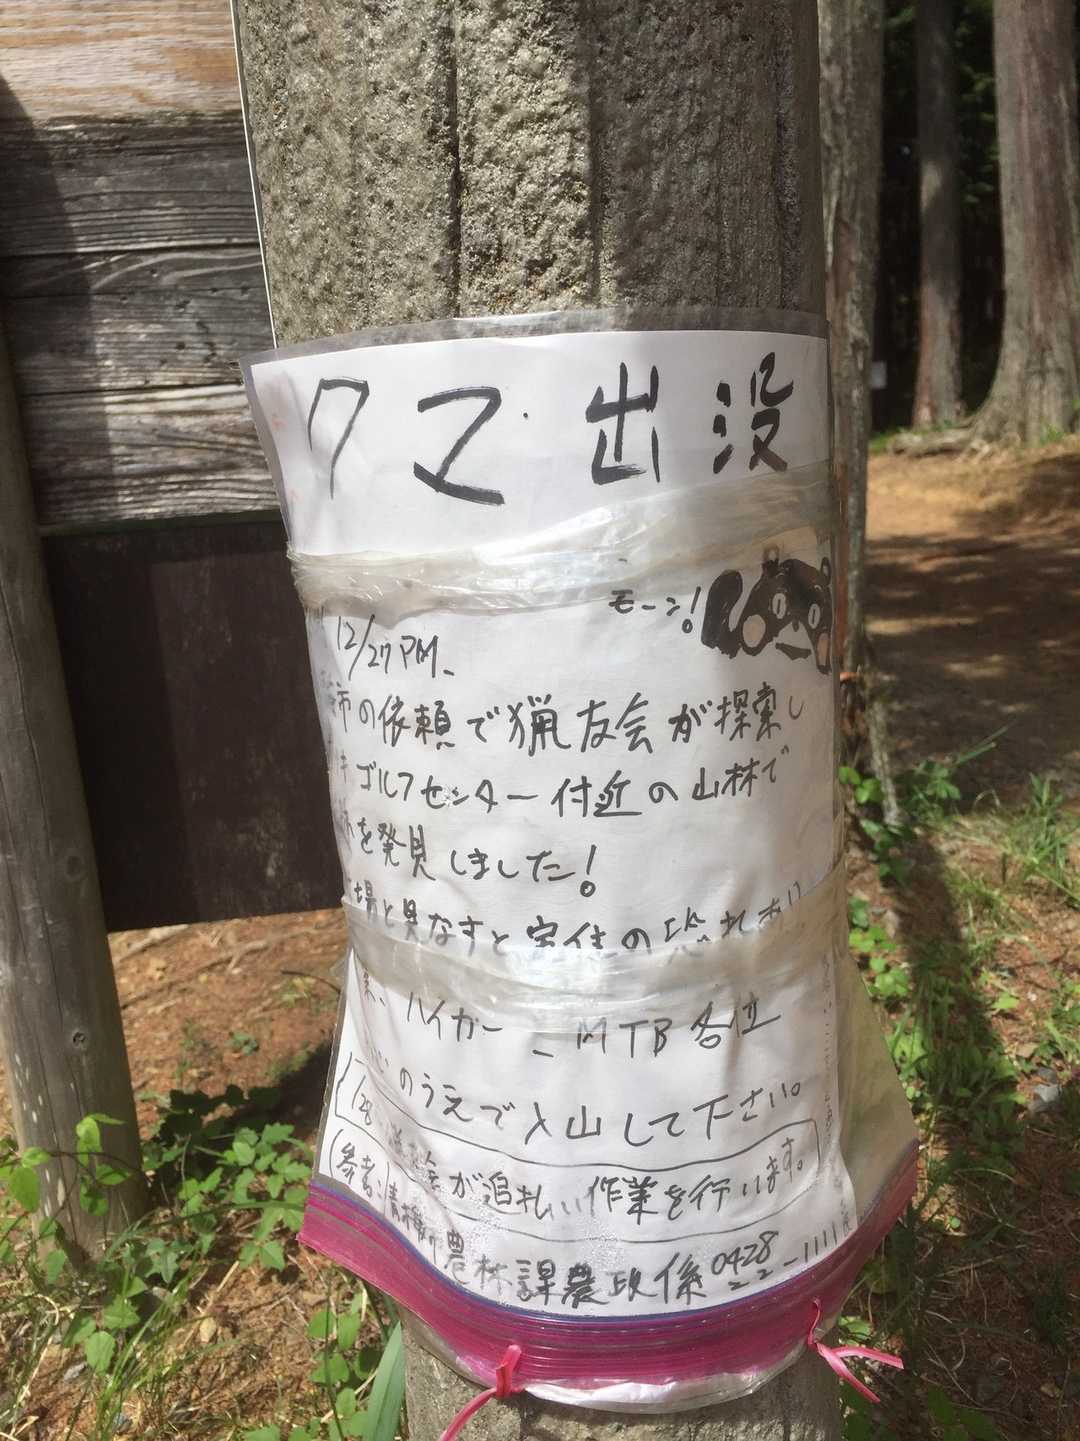 クマ出没
モーン!
12/27 PM.
市の依頼で猟友会が探索し
ゴルフセンター付近の山林で
を発見しました!
場と異なすと定住の恐れあり
ハイカー、MTB各位
のうえで入山して下さい。
1/28 が追払い作業を行います。
(参考:青梅市農林課農政係 0428
22-1111